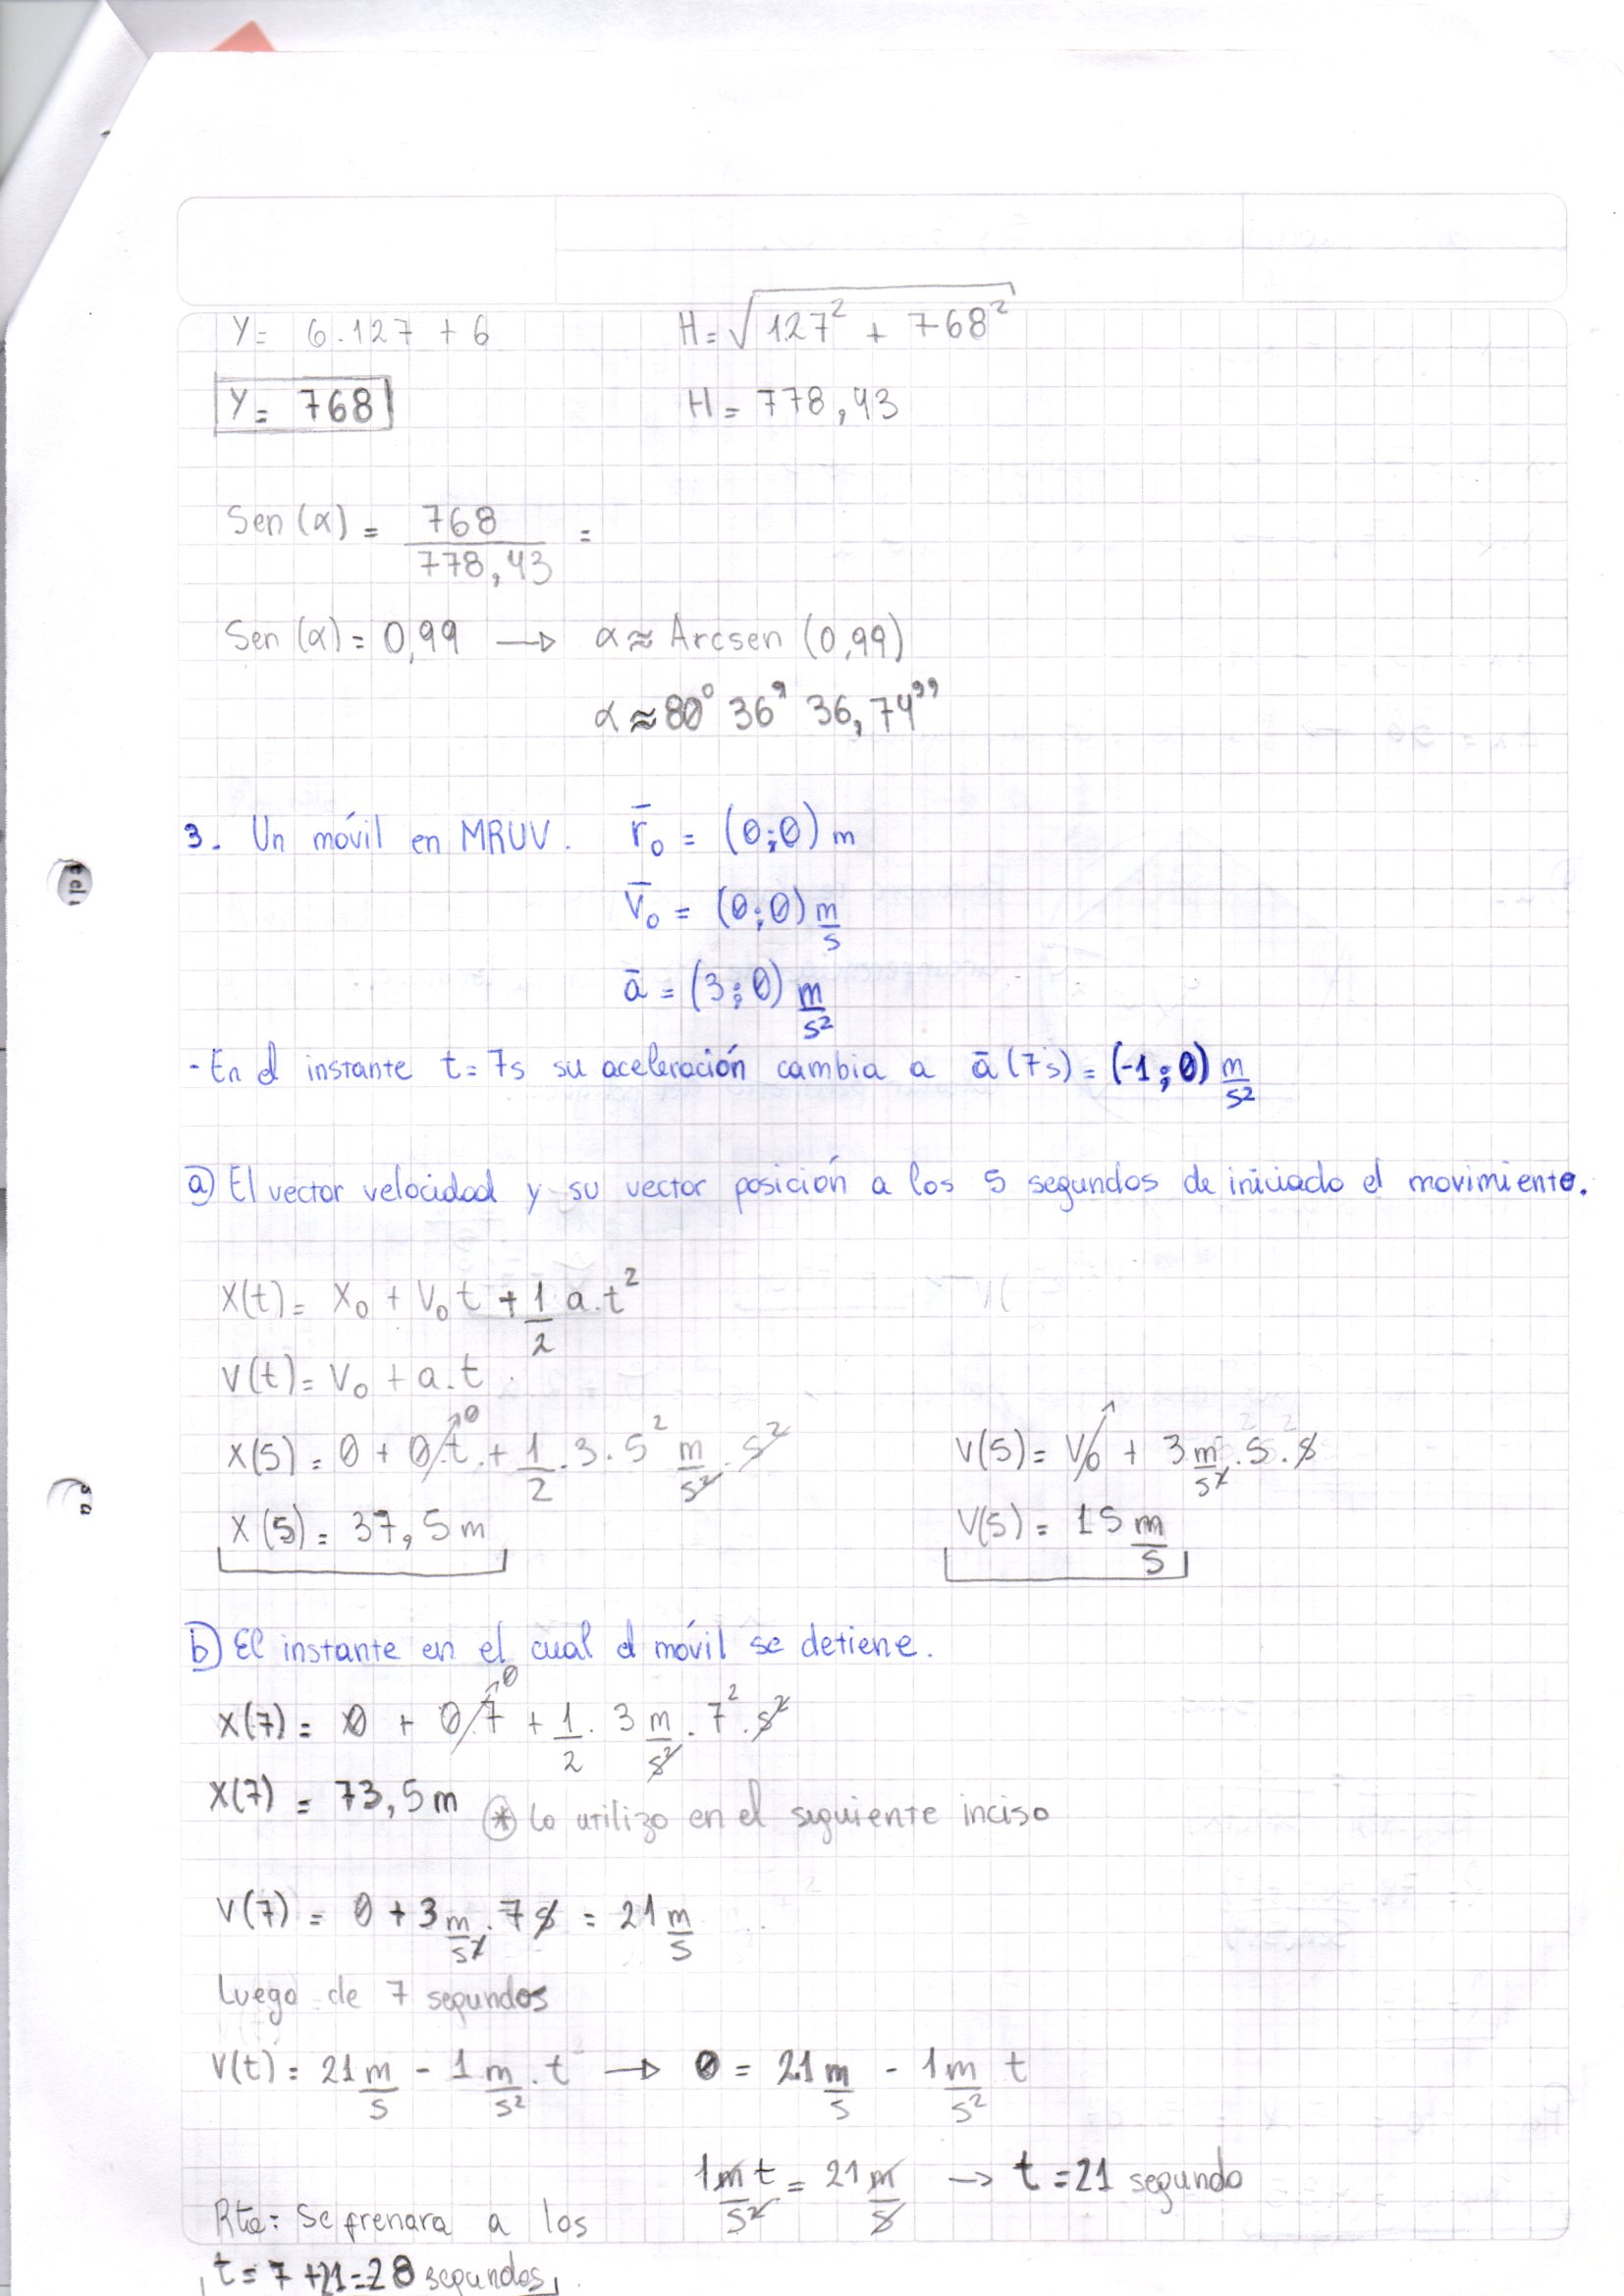 Y= 6.127 + 6
H= √127² + 768²
Y= 768
H= 778,43
Sen (α) = 768/778,43 =
Sen (α) = 0,99 → α ≈ Arcsen (0,99)
α ≈ 80° 36' 36,74''
3. Un móvil en MRUV. r̄₀ = (0;0) m
v̄₀ = (0;0) m/s
ā = (3;0) m/s²
- En el instante t= 7s su aceleración cambia a ā (7s) = (-1;0) m/s²
a) El vector velocidad y su vector posición a los 5 segundos de iniciado el movimiento.
X(t) = X₀ + V₀ t + 1/2 a.t²
V(t) = V₀ + a.t
X(5) = 0 + 0.t + 1/2 . 3 . 5² m/s² . s²
V(5) = V₀ + 3 m/s² . 5 . s
X(5) = 37,5 m
V(5) = 15 m/s
b) El instante en el cual el móvil se detiene.
X(7) = 0 + 0.7 + 1/2 . 3 m/s² . 7² . s²
X(7) = 73,5 m * lo utilizo en el siguiente inciso
V(7) = 0 + 3 m/s² . 7 s = 21 m/s
Luego de 7 segundos
V(t) = 21 m/s - 1 m/s² . t → 0 = 21 m/s - 1 m/s² t
1 m/s² t = 21 m/s → t = 21 segundo
Rta: Se frenara a los
t = 7 + 21 = 28 segundos